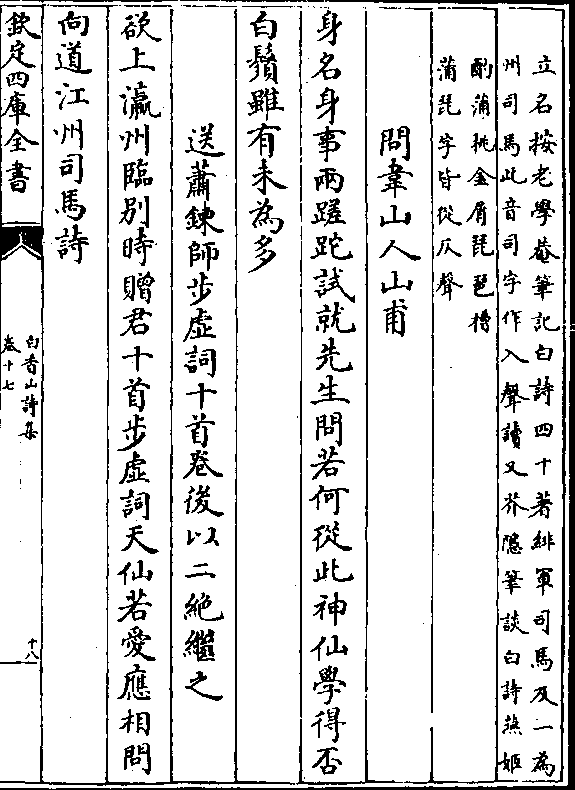 立名按老學菴筆記白詩四十著緋軍司馬及一為
州司馬此音司字作入聲讀又芥隱筆談白詩燕姬
酌蒲桃金屑琵琶槽
蒲琵字皆從仄聲
問韋山人山甫
身名身事兩蹉跎試就先生問若何從此神仙學得否
白鬚雖有未為多
送蕭鍊師步虛詞十首卷後以二絶繼之
欲上瀛州臨別時贈君十首步虛詞天仙若愛應相問
向道江州司馬詩
欽定四庫全書
白香山詩集
卷十七
十八